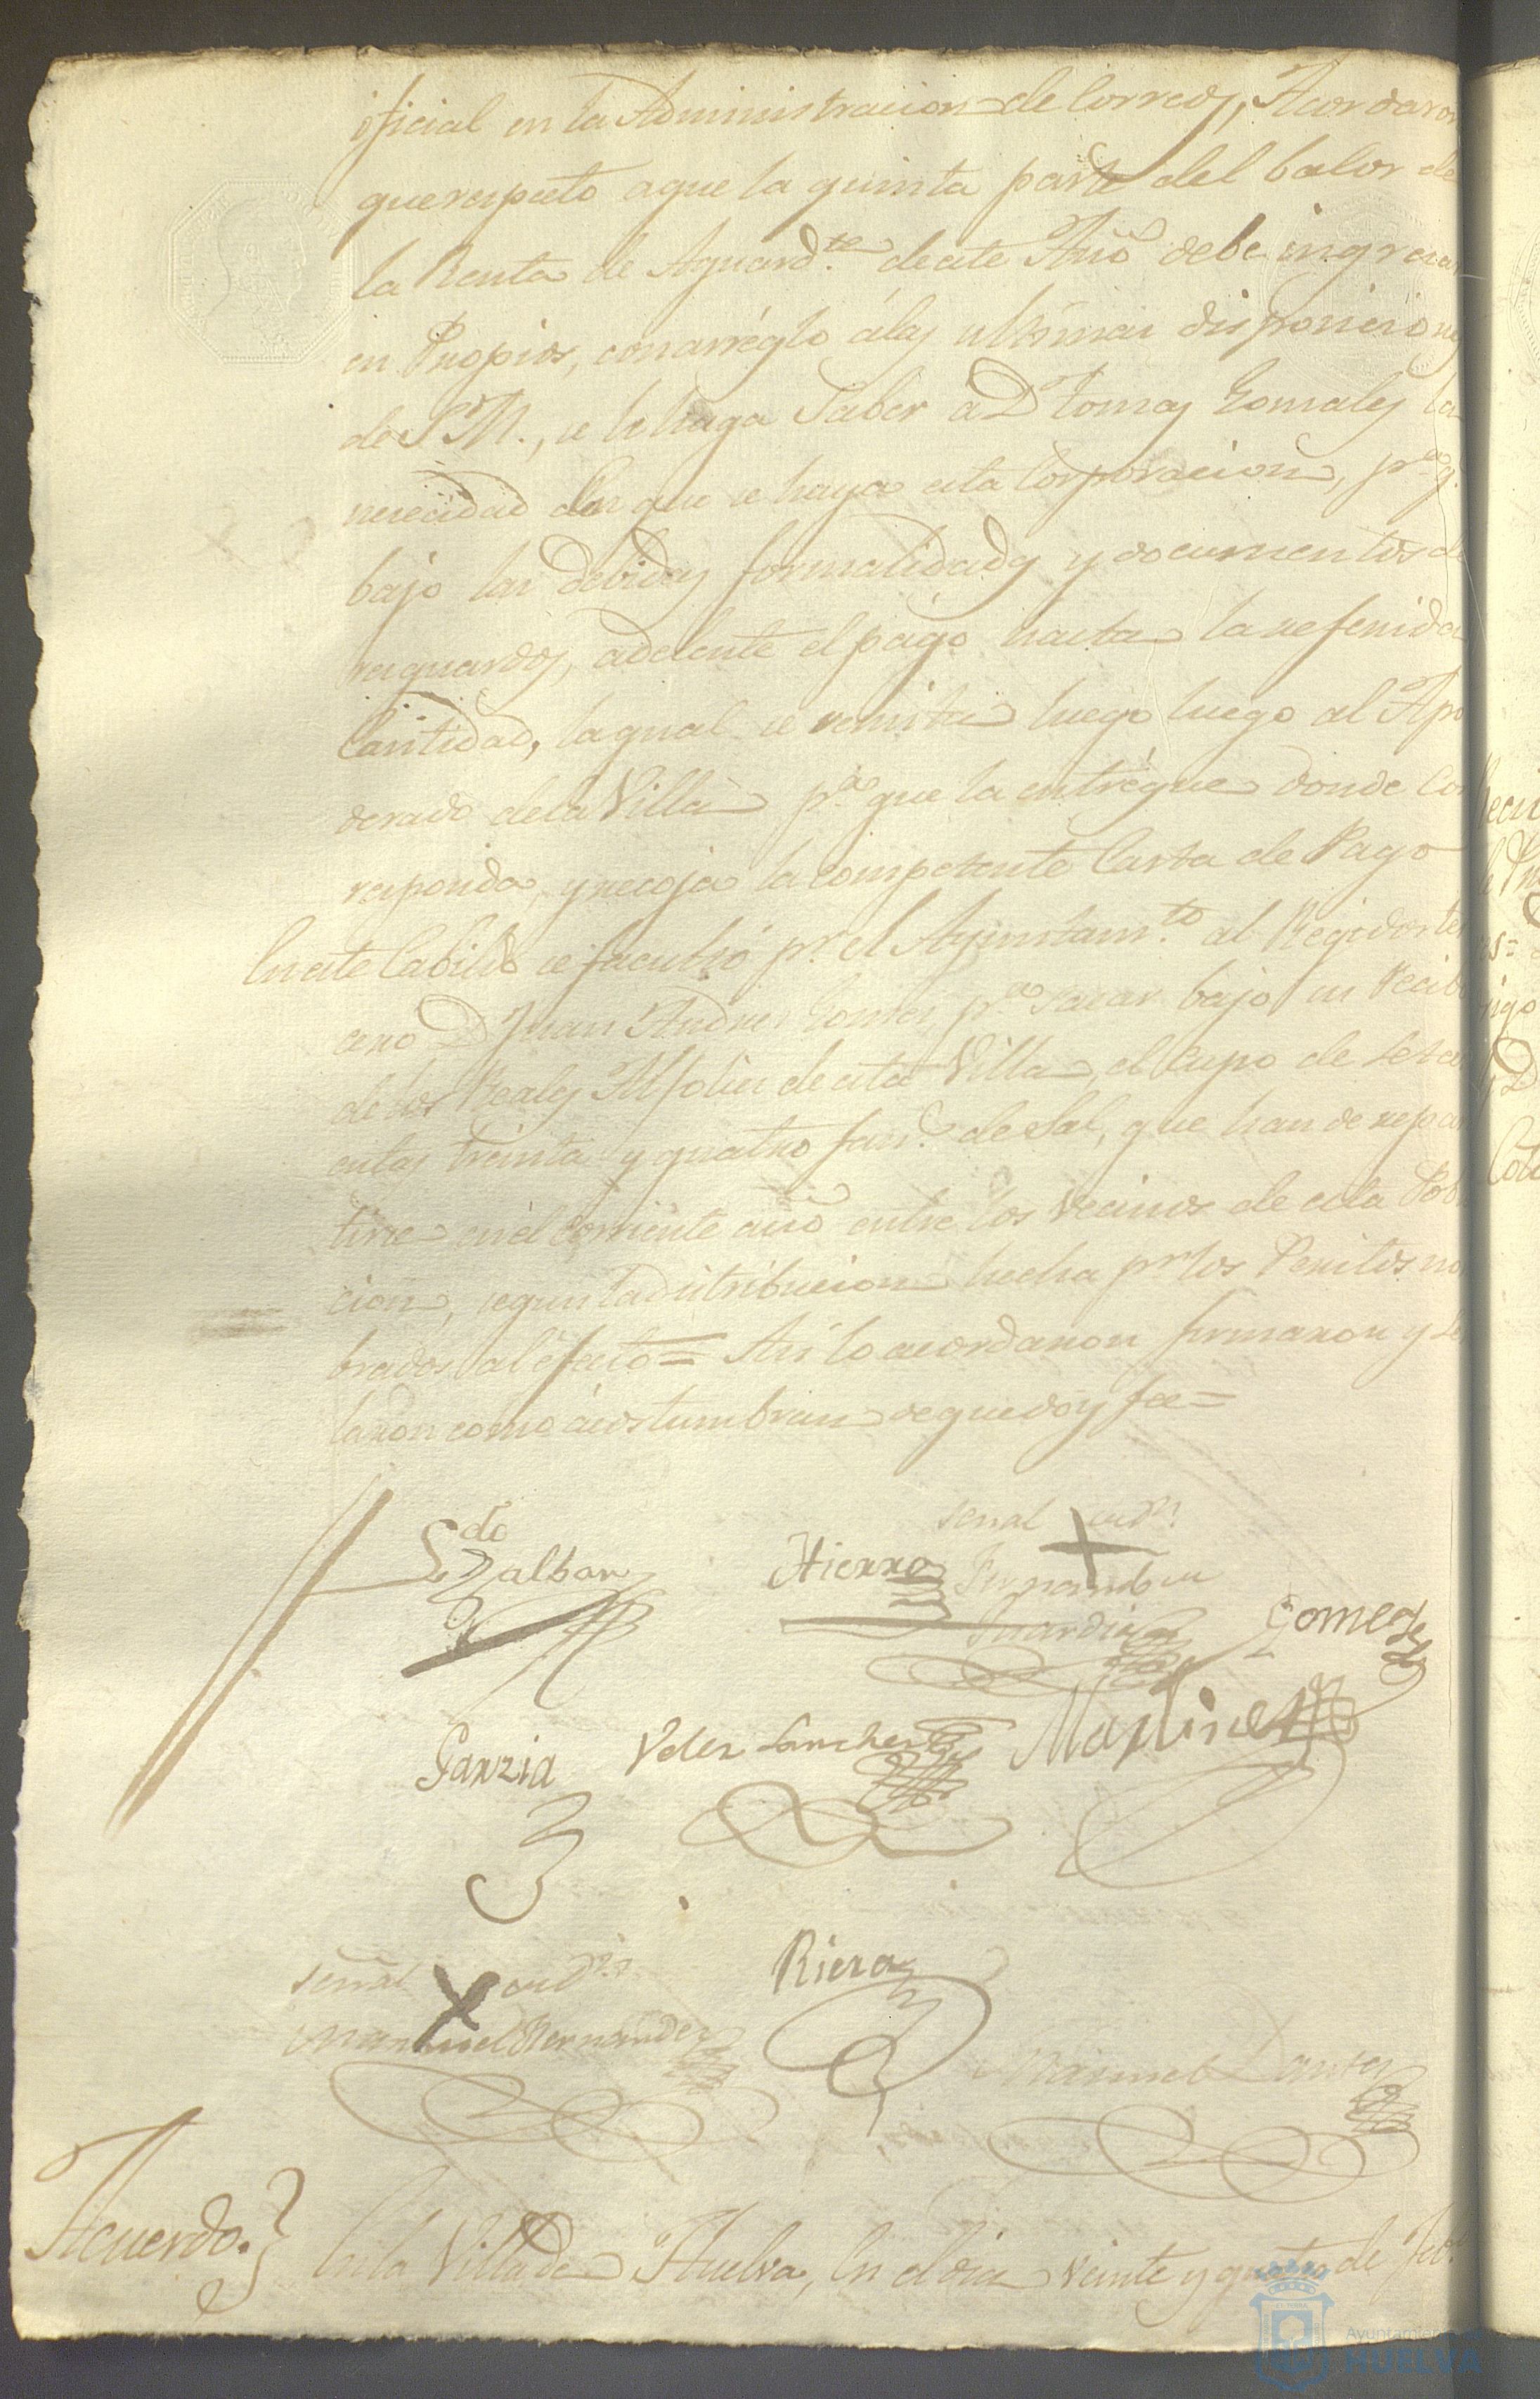 oficial en la Administracion de Correos, Acordaron
que respeto aque la quinta parte del balor de
la Renta de Aguard.te de este Año debe ingresar
en Propios, con arréglo álas ultimas disposiciones
de S. M., se le haga Saber a D.n Tomas Gonzales la
nesecidad en que se haya esta Corporacion, p.a q.e
bajo las debidas formalidades y documentos de
resguardos, adelente el págo hasta la referida
Cantidad, la qual se remita luego luego al Apo
derado dela Villa p.a que la entrégue donde Cor
responda, y recoja la competente Carta de Pago
En este Cabildo se facultó p.r el Ayuntam.to al Regidor ter
cero D.n Juan Andres Gomes, p.a sacar bajo su Recibo
de los Reales Alfolies de esta Villa, el Cupo de
entas treinta y quatro fan.s de Sal, que han de repar
tirse en el corriente año entre los vecinos de esta Pobla
cion, segun la distribucion hecha p.r los Peritos nom
brados al efecto = Asi lo acordaron firmaron y Se
laron como ácostumbran de que doy fee =
L.do Zalban
Hierro
señal de D.n
Guardia
Gomez
Garzia
Velez Sanchez
Martinez
señal de D.n
Manuel Hernandez
Riera
Manuel
Acuerdo.
En la Villa de Huelva, En el dia veinte y quatro de Feb.o
Ayuntamiento
HUELVA